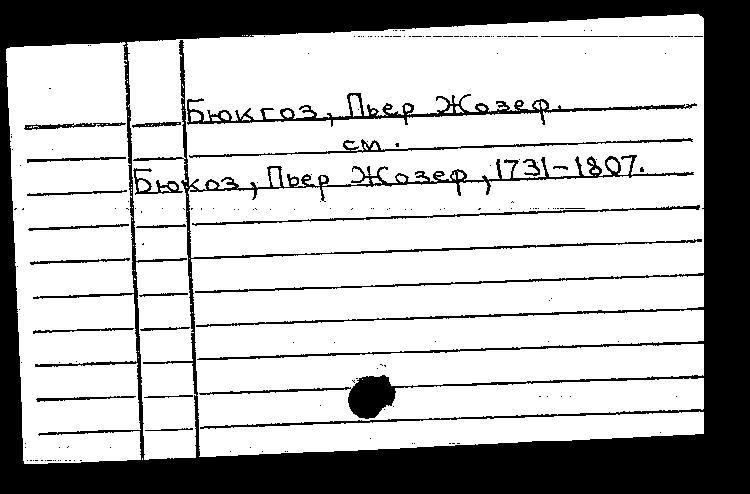 Бюкгоз, Пьер Жозеф.
см.
Бюкоз, Пьер Жозеф, 1731-1807.